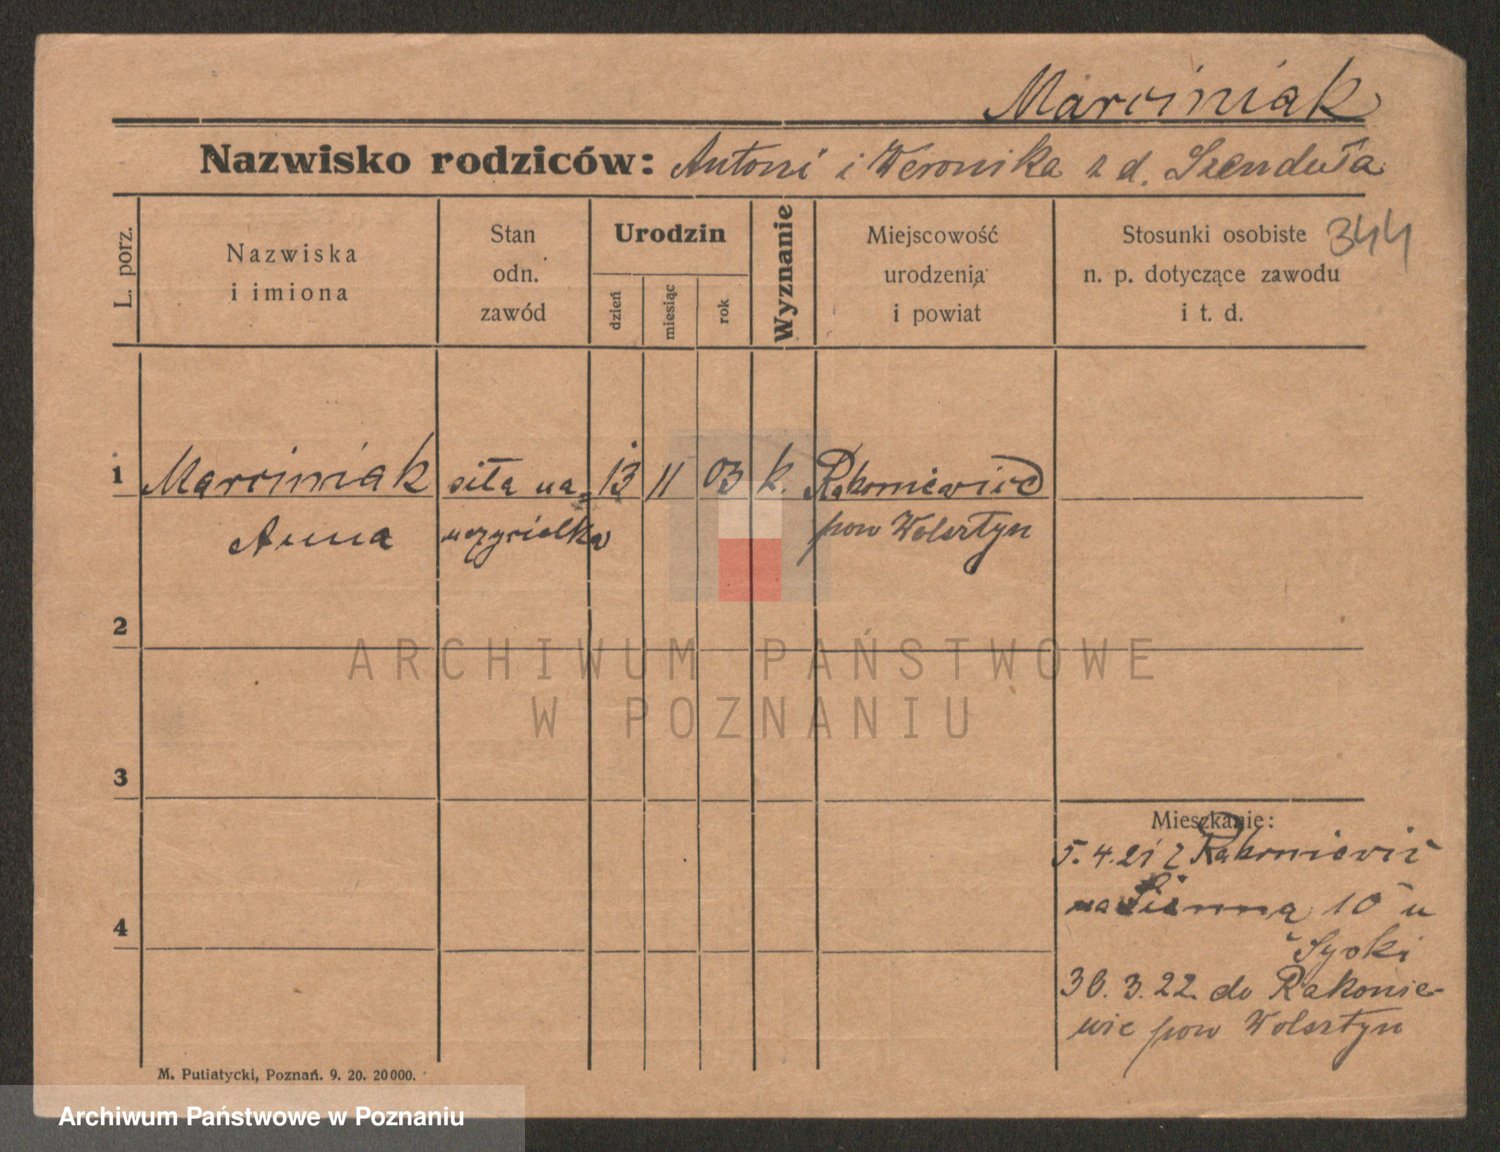 Marciniak
Nazwisko rodziców: Antoni i Weronika z d. Szenduła
L. porz.
Nazwiska
i imiona
Stan
odn.
zawód
Urodzin
dzień
miesiąc
rok
Wyznanie
Miejscowość
urodzenia
i powiat
Stosunki osobiste
n. p. dotyczące zawodu
i t. d.
344
1 Marciniak siła na= 13 11 03 k. Rakoniewice
Anna uczycielka pow Wolsztyn
2
ARCHIWUM PAŃSTWOWE
W POZNANIU
3
Mieszkanie:
5.4.21 z Rakoniewic
na Sienną 10 u
30.3.22 do Rakonie-
wic pow Wolsztyn
4
M. Putiatycki, Poznań. 9. 20. 20000.
Archiwum Państwowe w Poznaniu